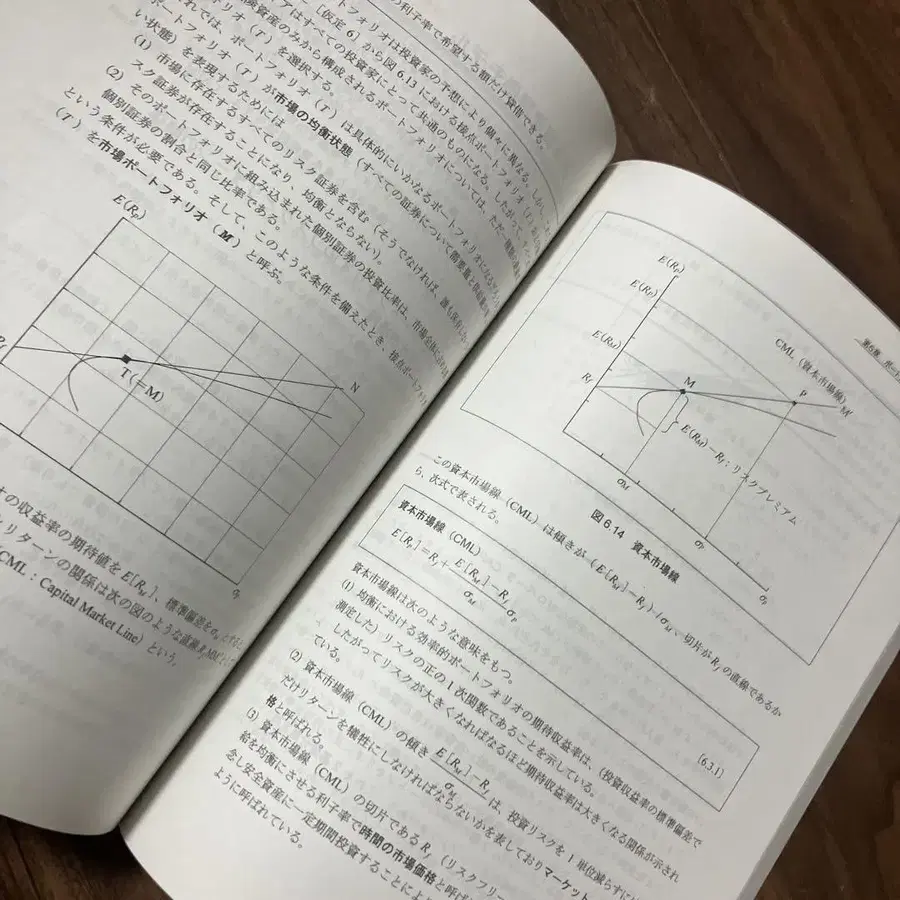 の利子率で希望する額だけ貸借できる。
トフォリオは投資家の予想により個々に異なる。しかし、
［仮定6］から図6.13における接点ポートフォリオ（T）
アはすべての投資家にとって共通のものになる。したがって、
険資産のみから構成されるポートフォリオについては、ただ一種類の
ォリオ（T）を選択する。
れでは、ポートフォリオ（T）は具体的にいかなるポートフォリオになる
ポートフォリオ（T）が市場の均衡状態（すべての証券について需要量と供給量
い状態）を表現するためには
(1) 市場に存在するすべてのリスク証券を含む（そうでなければ、誰も保有しない
スク証券が存在することになり、均衡とならない）。
(2) そのポートフォリオに組み込まれた個別証券の投資比率は、市場全体における
個別証券の割合と同じ比率である。
という条件が必要である。そして、このような条件を備えたとき、接点ポートフォリ
（T）を市場ポートフォリオ（M）と呼ぶ。
E(Rp)
Rf
T(=M)
N
σp
オの収益率の期待値をE[RM]、標準偏差をσMとすると
リターンの関係は次の図のような直線RfMM'と
CML：Capital Market Line）という。
第6章 ポート
E(Rp)
E(RP)
E(RM)
Rf
M
P
CML（資本市場線）
M'
E(RM)−Rf：リスクプレミアム
σM
σP
σp
図6.14 資本市場線
この資本市場線（CML）は傾きが（E[RM]−Rf）/σM、切片がRfの直線であるか
ら、次式で表される。
資本市場線（CML）
E[RP]=Rf+ E[RM]−Rf / σM σP
(6.3.1)
資本市場線は次のような意味をもつ。
(1) 均衡における効率的ポートフォリオの期待収益率は、（投資収益率の標準偏差で
測定した）リスクの正の1次関数であることを示している。
したがってリスクが大きくなればなるほど期待収益率は大きくなる関係が示され
ている。
(2) 資本市場線（CML）の傾き E[RM]−Rf / σM は、投資リスクを1単位減らすに
だけリターンを犠牲にしなければならないかを表しておりマーケット
格と呼ばれる。
(3) 資本市場線（CML）の切片であるRf（リスクフリー
給を均衡にさせる利子率で時間の市場価格と呼ば
念し安全資産に一定期間投資することによ
ように呼ばれている。